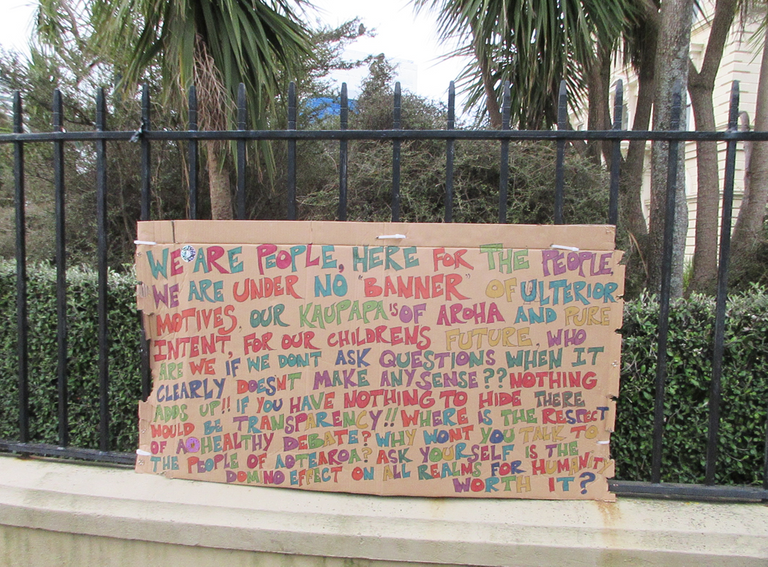 WE ARE PEOPLE, HERE FOR THE PEOPLE
WE ARE UNDER NO "BANNER" OF ULTERIOR
MOTIVES. OUR KAUPAPA IS OF AROHA AND PURE
INTENT, FOR OUR CHILDRENS FUTURE. WHO
ARE WE IF WE DONT ASK QUESTIONS WHEN IT
CLEARLY DOESNT MAKE ANY SENSE?? NOTHING
ADDS UP!! IF YOU HAVE NOTHING TO HIDE THERE
WOULD BE TRANSPARENCY!! WHERE IS THE RESPECT
OF A HEALTHY DEBATE? WHY WONT YOU TALK TO
THE PEOPLE OF AOTEAROA? ASK YOURSELF IS THE
DOMINO EFFECT ON ALL REALMS FOR HUMANITY
WORTH IT?